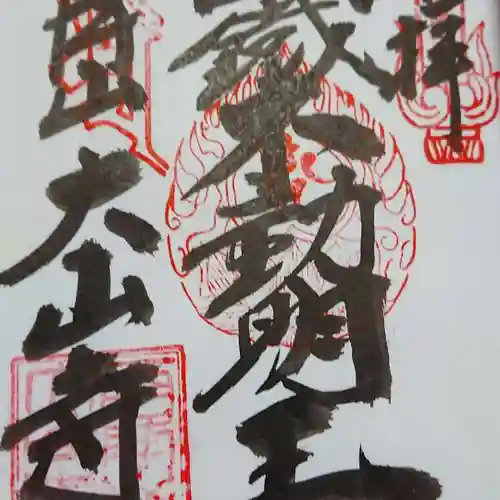 拝
鐵不動明王
山 大山寺